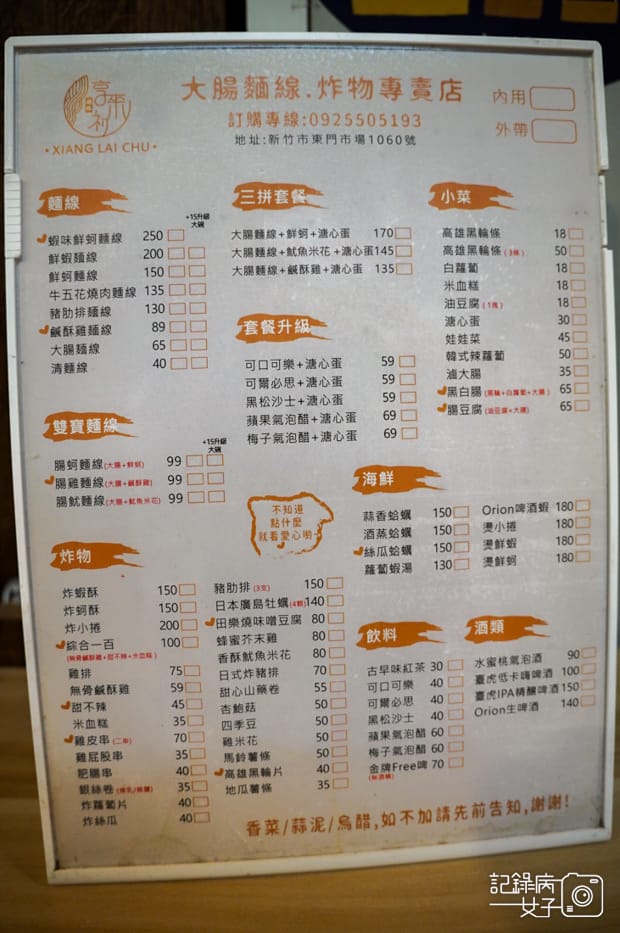 享來初
• XIANG LAI CHU •
大腸麵線.炸物專賣店
訂購專線:0925505193
地址:新竹市東門市場1060號
內用
外帶
麵線
+15升級大碗
蝦味鮮蚵麵線 250
鮮蝦麵線 200
鮮蚵麵線 150
牛五花燒肉麵線 135
豬肋排麵線 130
鹹酥雞麵線 89
大腸麵線 65
清麵線 40
雙寶麵線
+15升級大碗
腸蚵麵線(大腸+鮮蚵) 99
腸雞麵線(大腸+鹹酥雞) 99
腸魷麵線(大腸+魷魚米花) 99
炸物
炸蝦酥 150
炸蚵酥 150
炸小捲 200
綜合一百 100
(無骨鹹酥雞+甜不辣+米血糕)
雞排 75
無骨鹹酥雞 59
甜不辣 45
米血糕 35
雞皮串(二串) 70
雞屁股串 35
肥腸串 40
銀絲卷(煉乳/椒鹽) 35
炸蘿蔔片 40
炸絲瓜 40
豬肋排(3支) 150
日本廣島牡蠣(4顆) 140
田樂燒味噌豆腐 80
蜂蜜芥末雞 80
香酥魷魚米花 80
日式炸豬排 70
甜心山藥卷 55
杏鮑菇 50
四季豆 50
雞米花 50
馬鈴薯條 50
高雄黑輪片 40
地瓜薯條 35
三拼套餐
大腸麵線+鮮蚵+溏心蛋 170
大腸麵線+魷魚米花+溏心蛋 145
大腸麵線+鹹酥雞+溏心蛋 135
套餐升級
可口可樂+溏心蛋 59
可爾必思+溏心蛋 59
黑松沙士+溏心蛋 59
蘋果氣泡醋+溏心蛋 69
梅子氣泡醋+溏心蛋 69
不知道
點什麼
就看愛心喲
小菜
高雄黑輪條 18
高雄黑輪條(3條) 50
白蘿蔔 18
米血糕 18
油豆腐(1塊) 18
溏心蛋 30
娃娃菜 45
韓式辣蘿蔔 50
滷大腸 35
黑白腸(黑輪+白蘿蔔+大腸) 65
腸豆腐(油豆腐+大腸) 65
海鮮
蒜香蛤蠣 150
酒蒸蛤蠣 150
絲瓜蛤蠣 150
蘿蔔蝦湯 130
Orion啤酒蝦 180
燙小捲 180
燙鮮蝦 180
燙鮮蚵 180
飲料
古早味紅茶 30
可口可樂 40
可爾必思 40
黑松沙士 40
蘋果氣泡醋 60
梅子氣泡醋 60
金牌Free啤 70
(無酒精)
酒類
水蜜桃氣泡酒 90
臺虎低卡嗨啤酒 100
臺虎IPA精釀啤酒 150
Orion生啤酒 140
香菜/蒜泥/烏醋,如不加請先前告知,謝謝!
記錄病女子